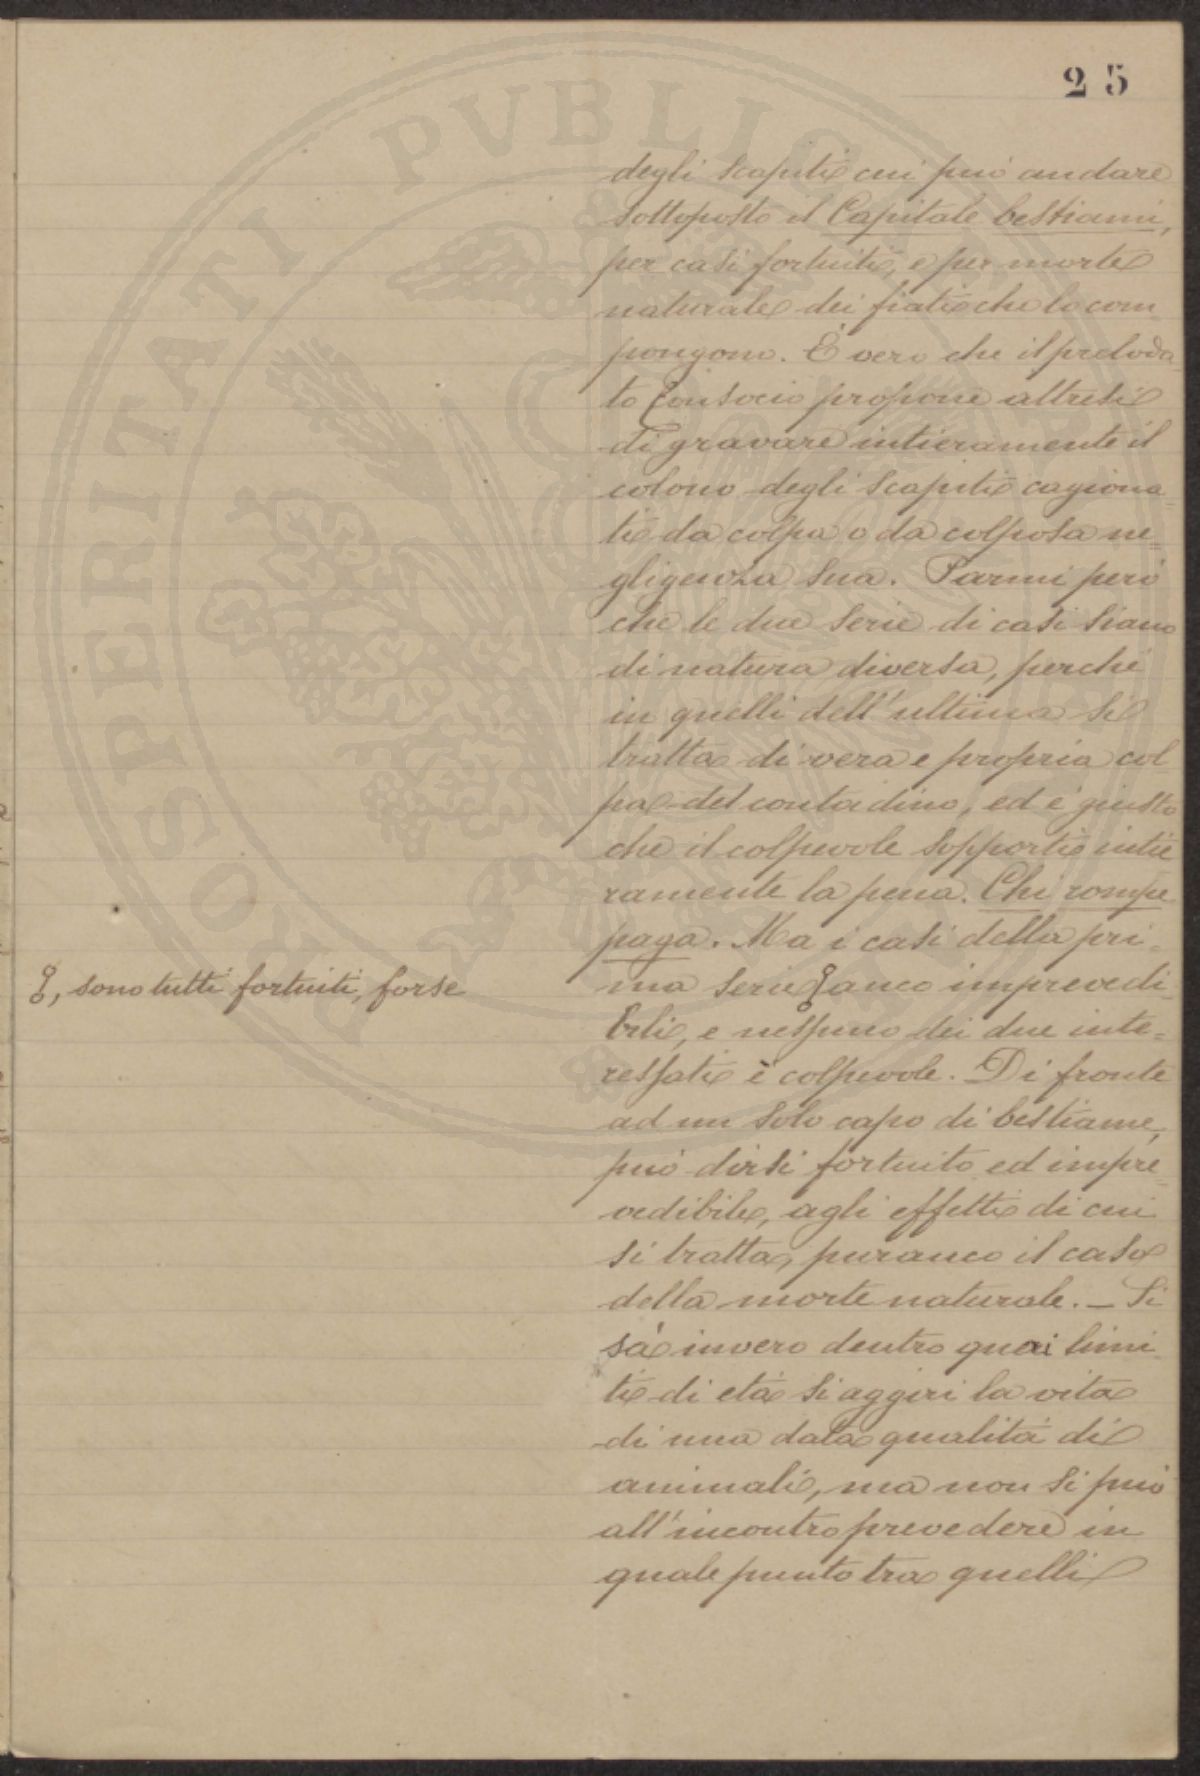 25
degli scapiti cui può andare
sottoposto il Capitale bestiami,
per casi fortuiti, e per morte
naturale dei fiati che lo com-
pongono. È vero che il preloda-
to Consocio propone altresì
di gravare intieramente il
colono degli scapiti cagiona-
ti da colpa o da colposa ne=
gligenza sua. Parmi però
che le due serie di casi siano
di natura diversa, perché
in quelli dell'ultima si
tratta di vera e propria col-
pa del contadino, ed è giusto
che il colpevole sopporti intie
ramente la pena. Chi rompe
paga. Ma i casi della pri-
ma serie anco imprevedi-
, sono tutti fortuiti, forse
bili, e nessuno dei due inte=
ressati è colpevole. Di fronte
ad un solo capo di bestiame,
può dirsi fortuito ed impre-
vedibile, agli effetti di cui
si tratta, puranco il caso
della morte naturale. – Si
sà invero dentro quai limi-
ti di età si aggiri la vita
di una data qualità di
animali, ma non si può
all'incontro prevedere in
quale punto tra quelli
PROSPERITATI PVBLICAE